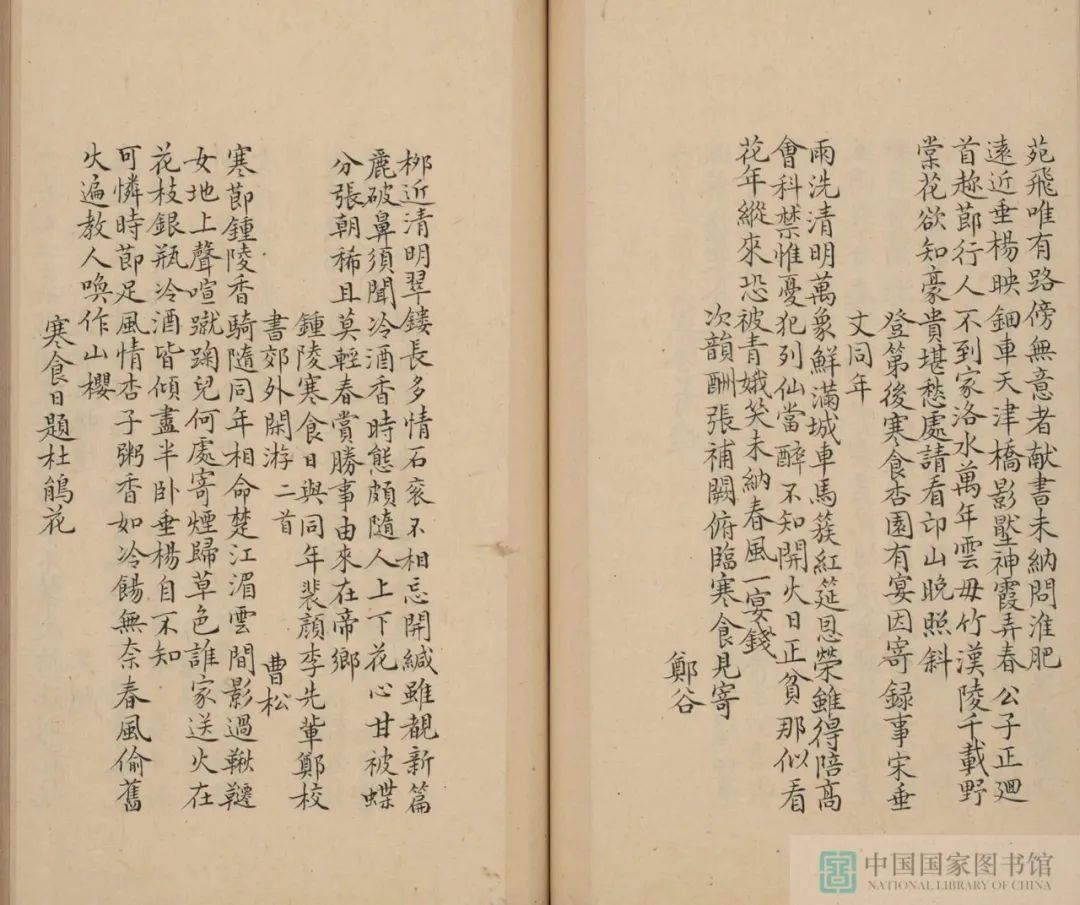 苑飛唯有路傍無意者献書未納問淮肥
遠近垂楊映鈿車天津橋影壓神霞弄春公子正廻
首趂莭行人不到家洛水萬年雲毋竹漢陵千載野
棠花欲知豪貴堪愁處請看卬山晚照斜
登第後寒食杏園有宴因寄録事宋垂
文同年
雨洗清明萬象鮮滿城車馬簇紅筵恩榮雖得陪高
會科禁惟憂犯列仙當醉不知開火日正貧那似看
花年縱來恐被青娥笑未納春風一宴錢
次韻酬張補闕俯臨寒食見寄
鄭谷
柳近清明翠鏤長多情石衮不相忘開緘雖覩新篇
麗破鼻須聞冷酒香時態頗隨人上下花心甘被蝶
分張朝稀且莫輕春賞勝事由來在帝鄉
鍾陵寒食日與同年裴顔李先輩鄭校
書郊外閑游二首
曹松
寒莭鍾陵香騎隨同年相命楚江湄雲間影過鞦韆
女地上聲喧蹴踘兒何處寄煙歸草色誰家送火在
花枝銀瓶冷酒皆傾盡半卧垂楊自不知
可憐時莭足風情杏子粥香如冷餳無奈春風偷舊
火遍教人喚作山櫻
寒食日題杜鵑花
中国国家图书馆
NATIONAL LIBRARY OF CHINA